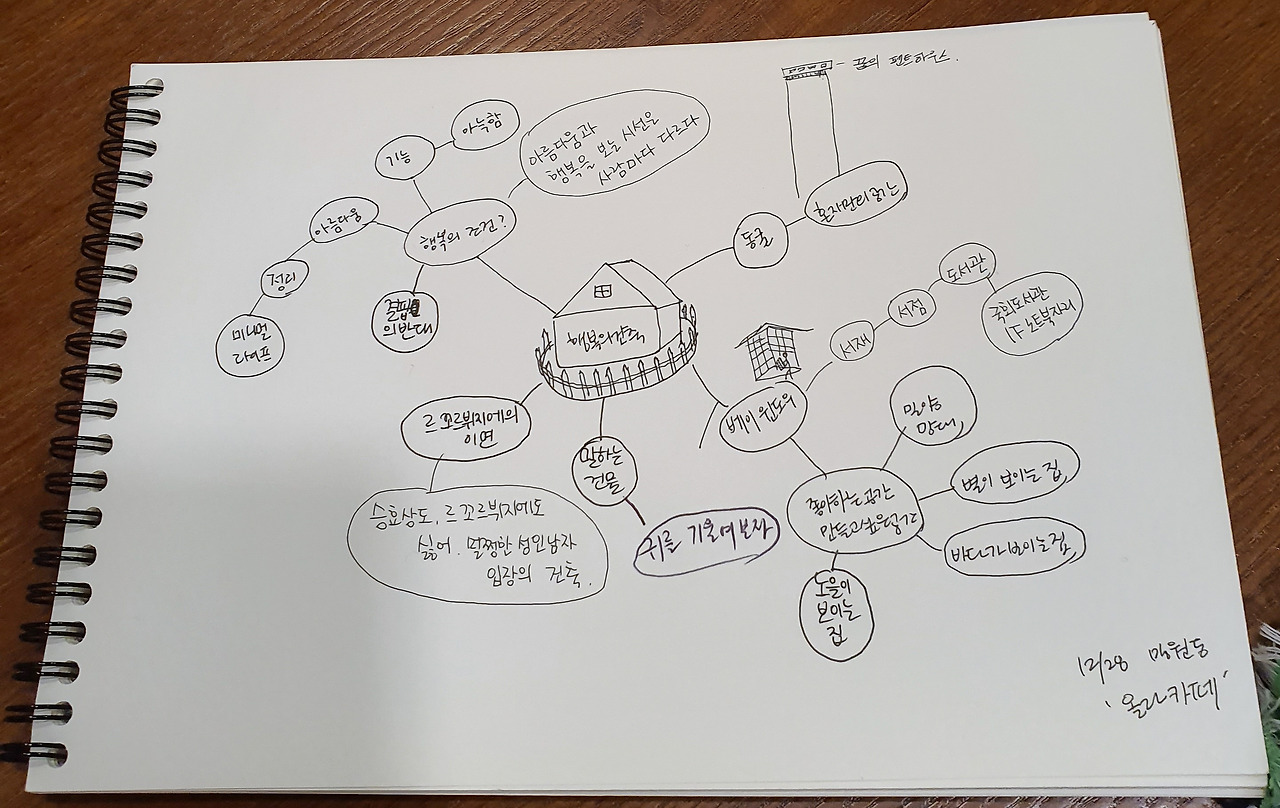 꿈의 펜트하우스.
아늑함
기능
아름다움과
행복을 보는 시선은
사람마다 다르다
아름다움
행복의 조건?
정리
미니멀
라이프
결핍
의 반대
혼자만의 공간
동굴
행복의 건축
도서관
서점
서재
국회도서관
1F 노트북자리
베이 윈도우
르 꼬르뷔지에의
이면
승효상도, 르 꼬르뷔지에도
싫어. 멀쩡한 성인남자
입장의 건축.
말하는
건물
귀를 기울여보자
좋아하는 공간
만들고싶은공간
밀양
망대,
별이 보이는 집,
바다가 보이는 집,
노을이
보이는
집
12/28 망원동
'올라카페'